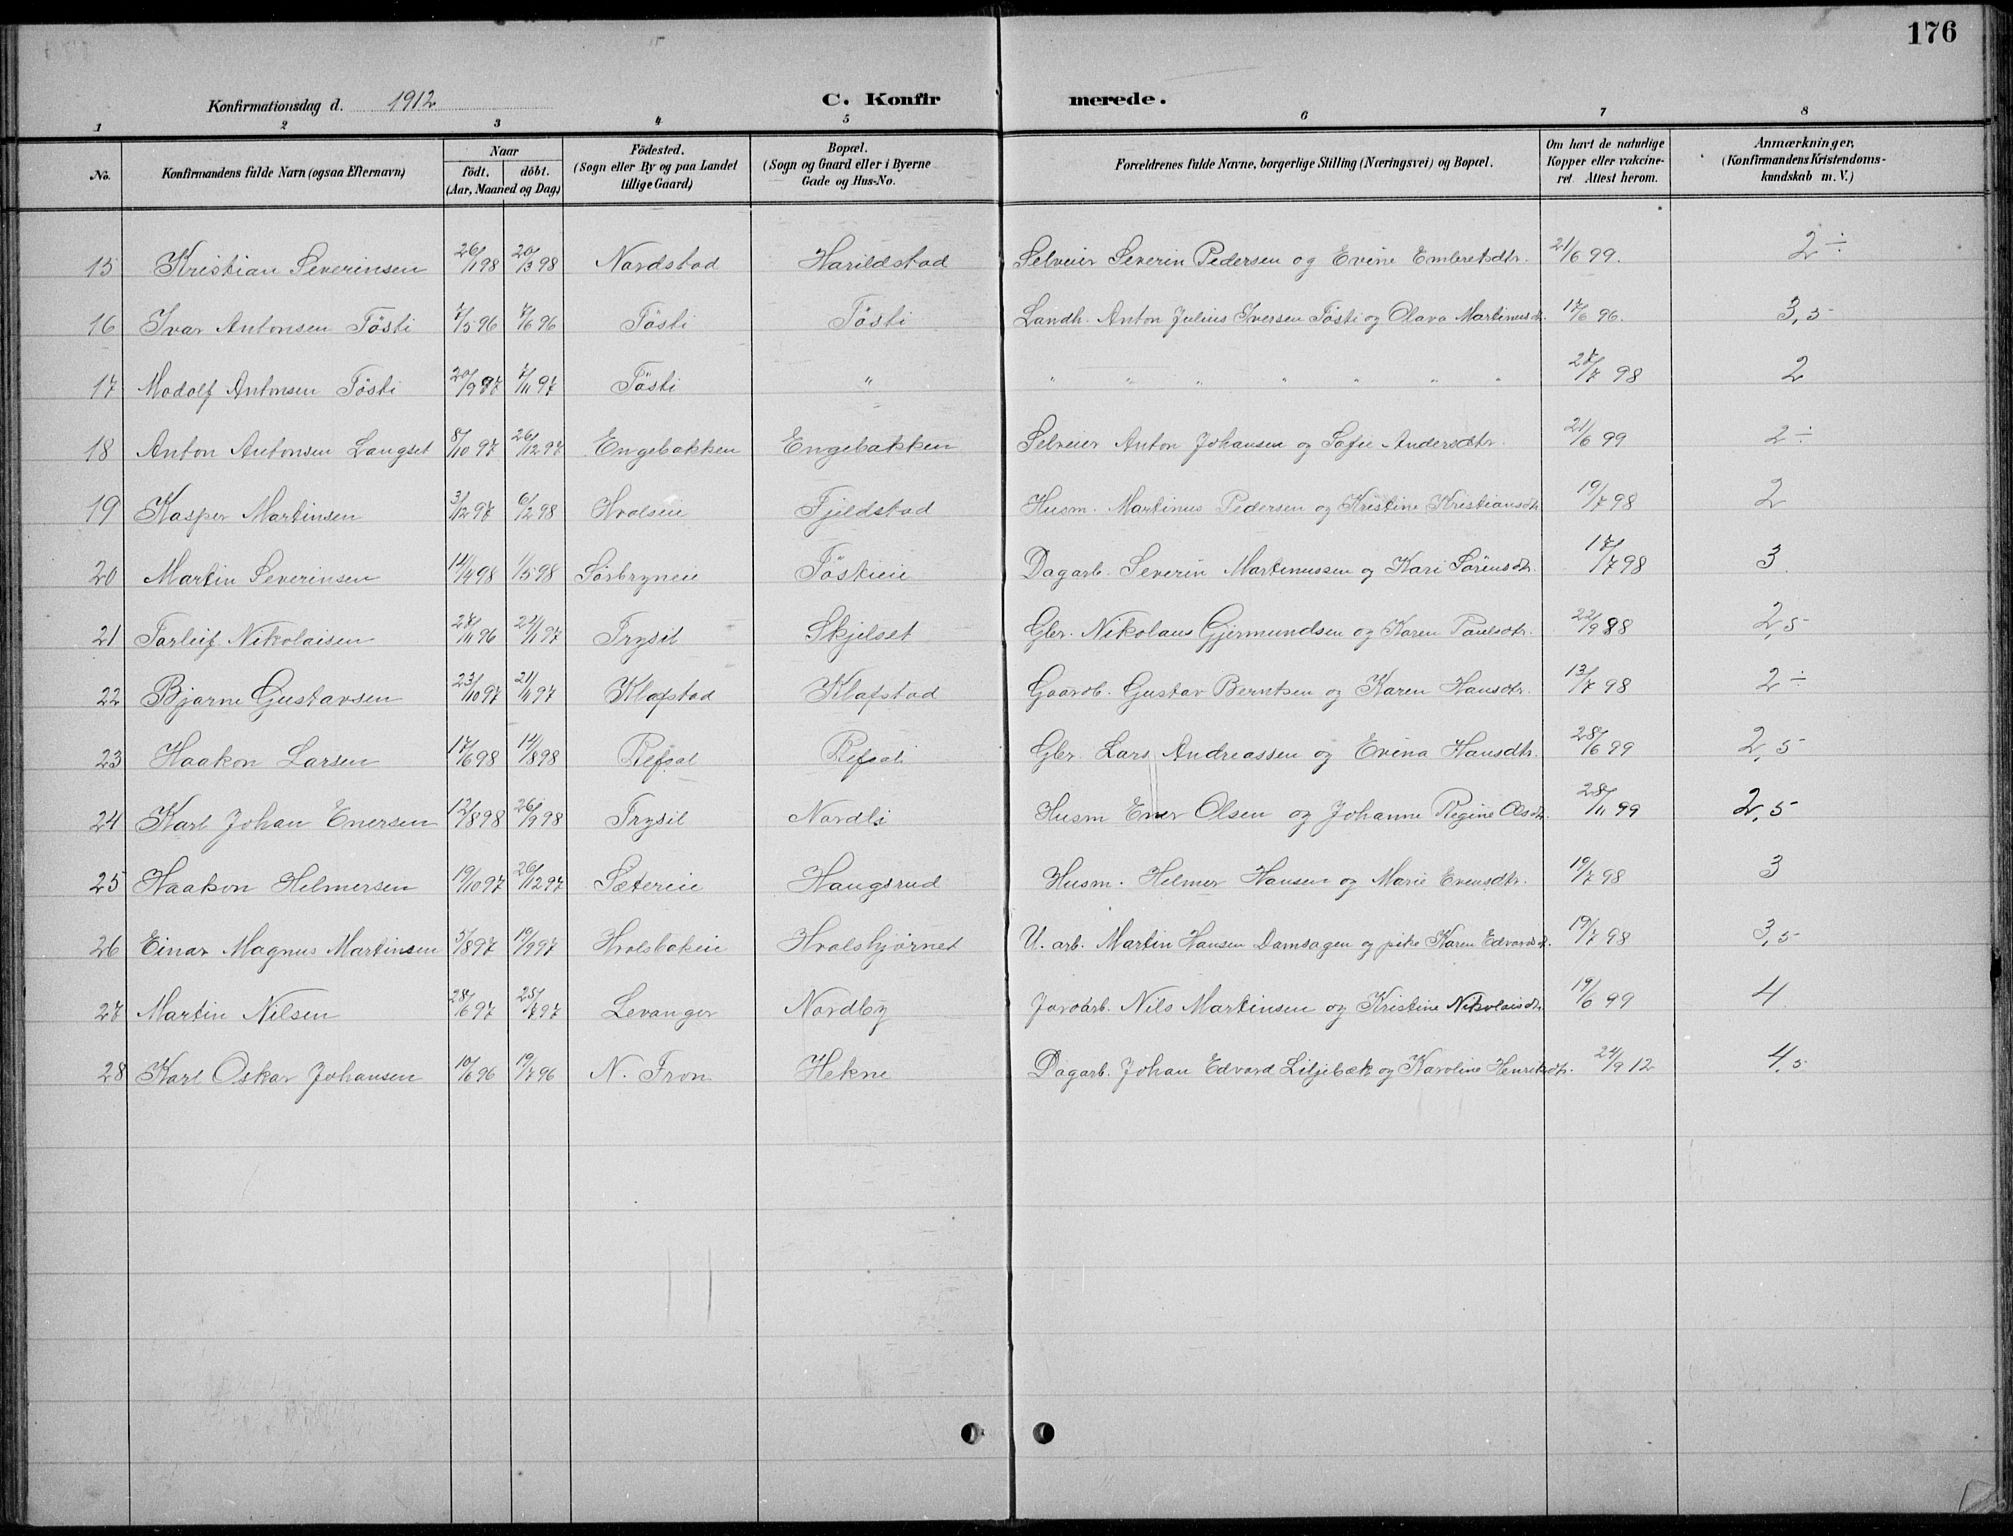 176
Konfirmationsdag d. 1912
C. Konfirmerede.
1 2 3 4 5 6 7 8
No. | Konfirmandens fulde Navn (ogsaa Efternavn) | Naar født. døbt. (Aar, Maaned og Dag) | Fødested. (Sogn eller By og paa Landet tillige Gaard) | Bopæl. (Sogn og Gaard eller i Byerne Gade og Hus-No. | Forældrenes fulde Navne, borgerlige Stilling (Næringsvei) og Bopæl. | Om havt de naturlige Kopper eller vakcineret Attest herom. | Anmærkninger, (Konfirmandens Kristendomskundskab m. V.)
15 Kristian Severinsen 26/1 98 20/3 98 Nordstad Harildstad Selveier Severin Pedersen og Evine Embretsdtr. 21/6 99. 2 ÷
16 Ivar Antonsen Tösti 7/5 96 7/6 96 Tösti Tösti Landh. Anton Julius Iversen Tösti og Olava Martinusdtr. 17/6 96. 3,5
17 Modolf Antonsen Tösti 20/9 97 7/11 97 Tösti " " " " " " " " 27/7 98 2
18 Anton Antonsen Langset 8/10 97 26/12 97 Engebakken Engebakken Selveier Anton Johansen og Sofie Andersdtr. 21/6 99 2 ÷
19 Kasper Martinsen 3/12 97 6/2 98 Hvalseie Fjeldstad Husm. Martinus Pedersen og Kristine Kristiansdtr. 19/7 98 2
20 Martin Severinsen 14/4 98 1/5 98 Sørbryneie Töstieie Dagarb. Severin Martinussen og Kari Sørensdtr. 17/7 98 3
21 Torleif Nikolaisen 27/11 96 22/1 97 Trysil Skjelset Gbr. Nikolaus Gjermundsen og Karen Paulsdtr. 22/9 98 2,5
22 Bjarne Gustavsen 23/10 97 21/11 97 Klafstad Klafstad Gaardb. Gustav Berntsen og Karen Hansdtr. 13/7 98 2 ÷
23 Haakon Larsen 17/6 98 14/8 98 Refsal Refsal Gbr. Lars Andreassen og Evina Hansdtr. 28/6 99 2,5
24 Karl Johan Enersen 12/8 98 26/9 98 Trysil Nordli Husm Ener Olsen og Johanne Regine Olsdtr. 28/11 99 2,5
25 Haakon Helmersen 19/10 97 26/12 97 Sætereie Haugsrud Husm. Helmer Hansen og Marie Evensdtr. 19/7 98 3
26 Einar Magnus Martinsen 5/8 97 19/9 97 Hvalsbakeie Hvalshjørnet U. arb. Martin Hansen Damsagen og pike Karen Edvardsdtr. 19/7 98 3,5
27 Martin Nilsen 28/6 97 25/7 97 Levanger Nordby Jordarb. Nils Martinsen og Kristine Nikolaisdtr 19/6 99 4
28 Karl Oskar Johansen 10/6 96 19/7 96 N. Fron Hekne Dagarb. Johan Edvard Liljebæk og Karoline Henriksdtr. 24/9 12 4,5